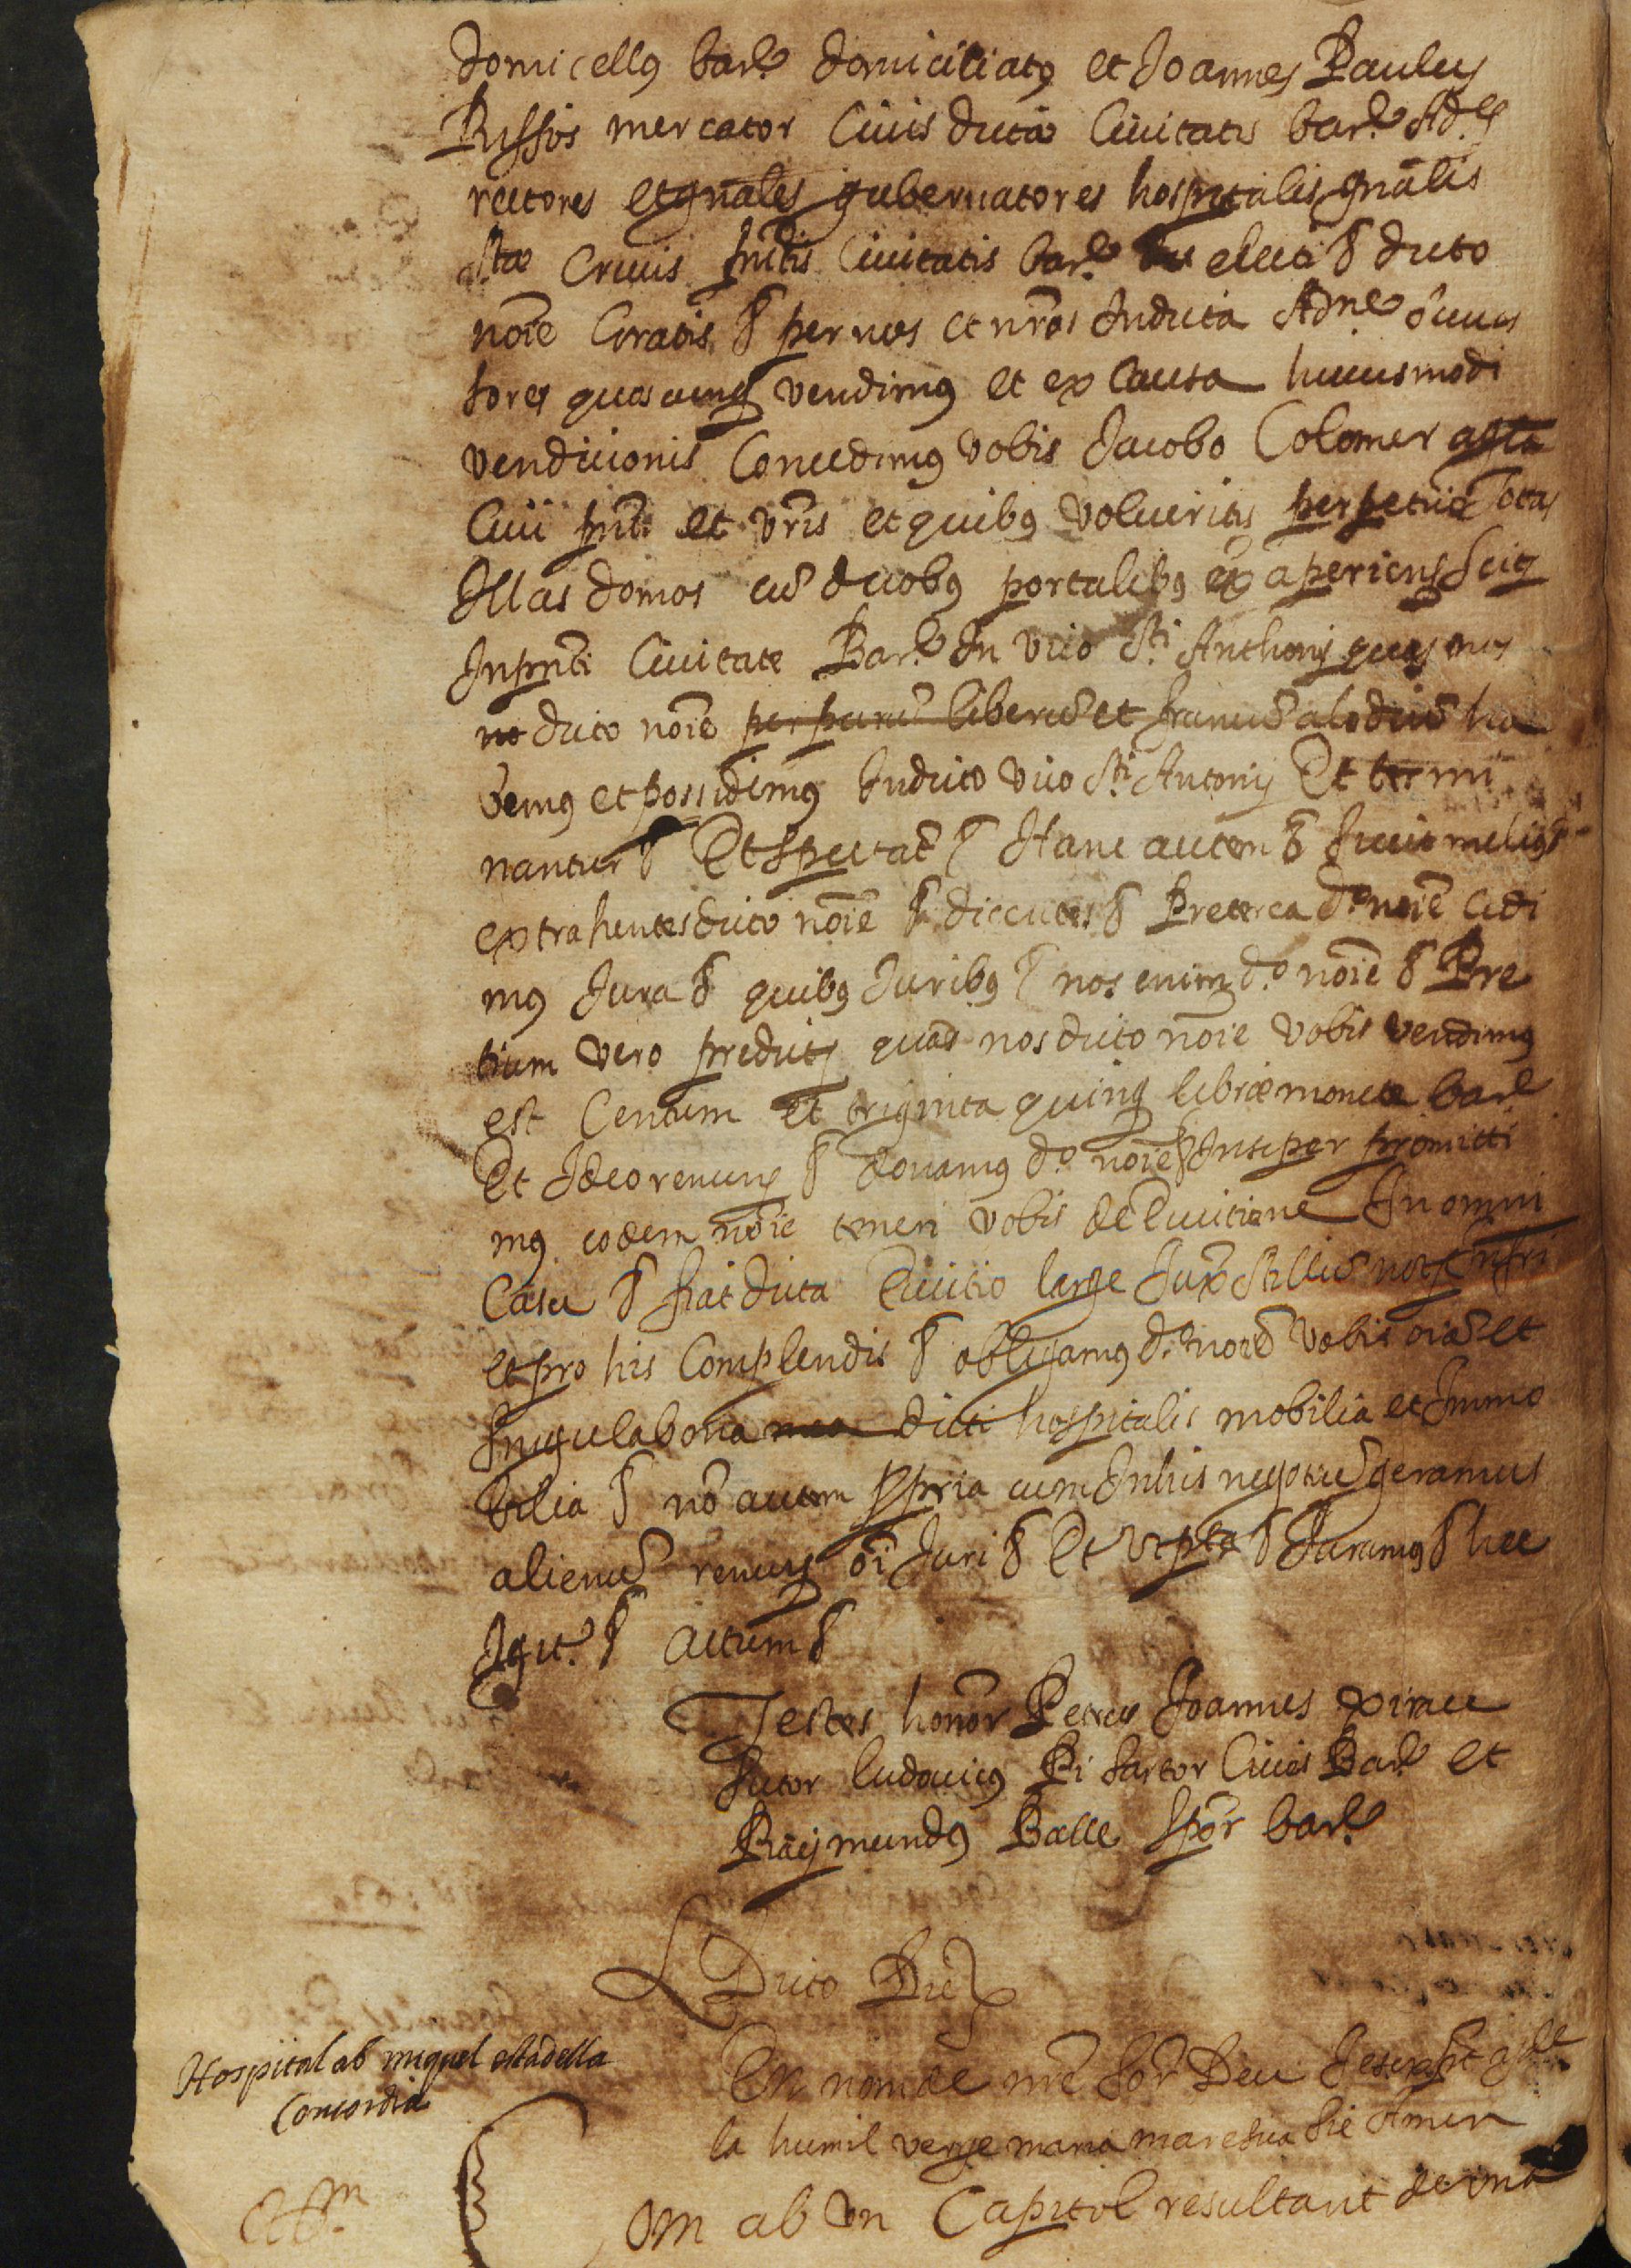 domicellus barne domiciliatus et Joannes Paulus
Rissos mercator Civis dicta Civitatis barne Ad.es
rectores et gnales gubernatores hospitalis gnalis
stae Crucis pntis Civitatis barne electi & dicto
noie Gratis & per nos et nros In dicta Adme succes
sores quoscunq vendimus et ex causa huiusmodi
vendicionis Concedimus vobis Jacobo Colomer
Civi pnti et vris et quibus volueritis perpetuo totas
Illas domos cu duobus portalibus ex aperiens Scitas
In pnti Civitate Barne In vico Sti Anthonij quas nos
dicto noie per puru liberu et francu alodiu ha
bemus et possidemus In dicto vico Sti Antonij Et termi
nantur & Et spectat & Hanc autem & sicut melius &
extrahentes dicto noie & dicentes & Preterea do noie cedi
mus Jura & quibus Juribus & nos enim do noie & Pre
tium vero predict quas nos dicto noie vobis vendimus
est Centum et triginta quinq librae moneta barne
Et Ideo renun & donamus do noie & Insuper promitti
mus eodem noie teneri vobis de Evictione In omni
Casu & fiat dicta Evictio large Jux stillu not infri
et pro his Complendis & obligamus do noie vobis oia et
singula bona dicti hospitalis mobilia et Immo
bilia & no autem ppria cum In his negotiu geramus
alienu renun oi Juri & Et ut pta & Juramus & hec
Igit & Actum &
Testes honor Petrus Joannes
sutor Ludovicus Pi sartor Cives Barne et
Raijmundus Balle scpor barne
Dicto Die
En nom de nre Sor Deu Jesuxpt
la humil verge maria mare sua sie Amen
Hospital ab miquel estadella
Concordia
om ab un Capitol resultant de una